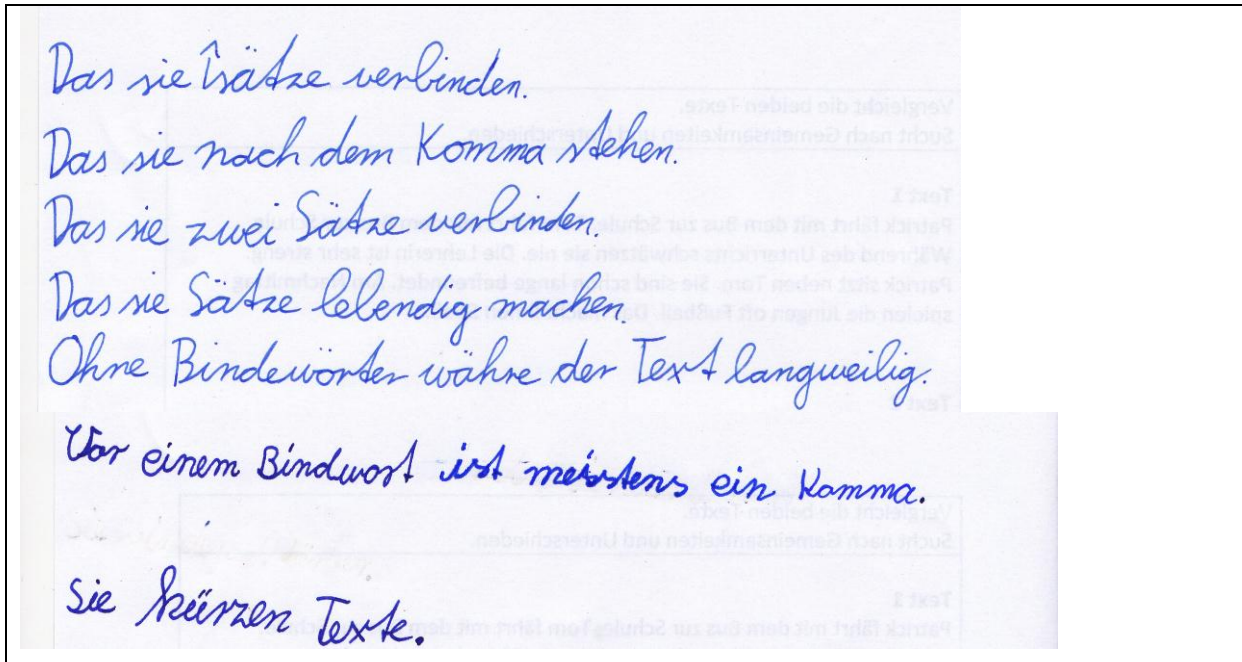 Das sie Sätze verbinden.
Das sie nach dem Komma stehen.
Das sie zwei Sätze verbinden.
Das sie Sätze lebendig machen.
Ohne Bindewörter währe der Text langweilig.
Vor einem Bindwort ist meistens ein Komma.
Sie kürzen Texte.